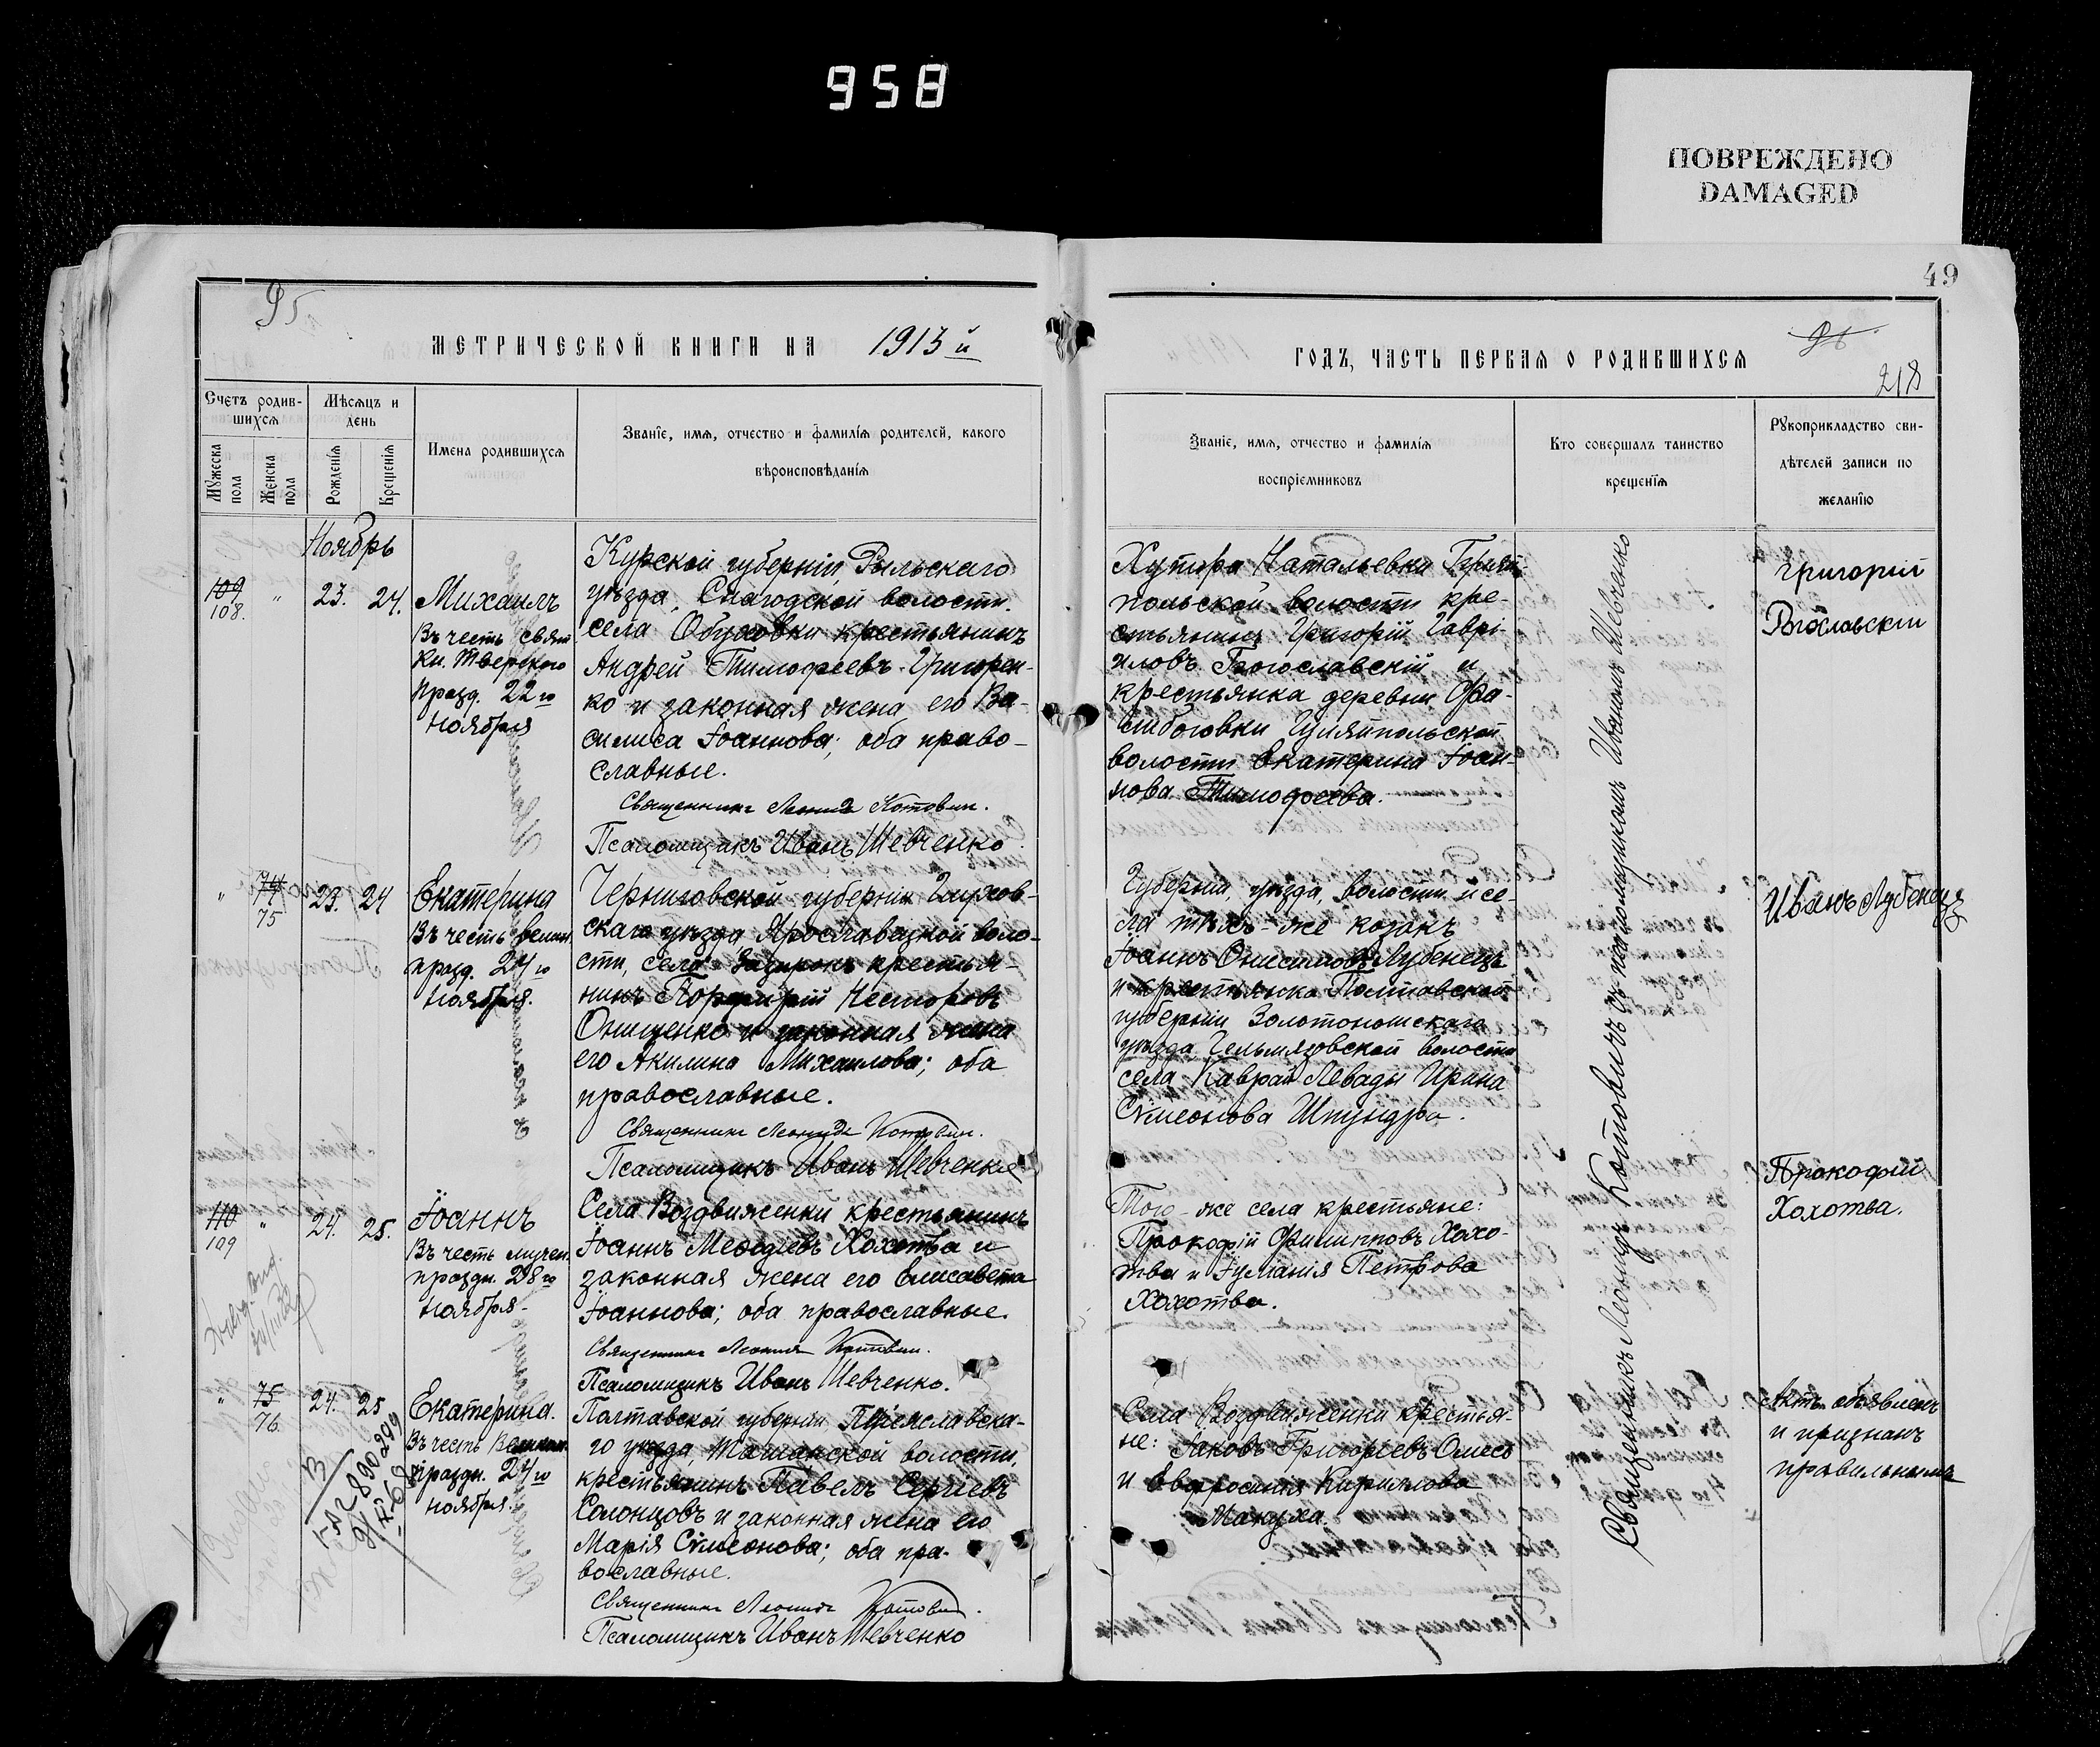 958
ПОВРЕЖДЕНО
DAMAGED
49
95
МЕТРИЧЕСКОЙ КНИГИ НА 1913 й
ГОДЪ, ЧАСТЬ ПЕРВАЯ О РОДИВШИХСЯ
218
Счетъ родив-
шихся
Мѣсяцъ и
день
Мужеска
пола
Женска
пола
Рожденія
Крещенія
Имена родившихся
Званіе, имя, отчество и фамилія родителей, какого
вѣроисповѣданія
Званіе, имя, отчество и фамилія
воспріемниковъ
Кто совершалъ таинство
крещенія
Рукоприкладство сви-
дѣтелей записи по
желанію
Ноябрь
109
108.
" 23. 24.
Михаилъ
Въ честь свят.
Кн. Тверского
празд. 22 го
ноября
Курской губерніи, Рыльскаго
уѣзда, Снагодской волости.
села Обуховки крестьянинъ
Андрей Тимофеевъ Григорен-
ко и законная жена его Ва-
силиса Іоаннова; оба право-
славные.
Священникъ Леонидъ Котович.
Псаломщикъ Иванъ Шевченко.
Хутора Натальевки Гуляй-
польской волости кре-
стьянинъ Григорій Гаврі-
иловъ Богославскій и
крестьянка деревни
Гуляйпольской
волости Екатерина Іоан-
нова Тимофеева.
Григорій
Богославскій
"
74
75
23. 24
Екатерина
Въ честь велик.
празд. 24 го
ноября.
Черниговской губерніи Глухов-
скаго уѣзда Ярославецкой воло-
сти, села крестья-
нинъ Порфирій Несторовъ
Онищенко и законная жена
его Акилина Михаилова; оба
православные.
Священникъ Леонидъ Котович.
Псаломщикъ Иванъ Шевченко
Губерніи, уѣзда, волости и се-
ла тѣхъ-же козакъ
Іоаннъ Онисимовъ Лубенецъ
и крестьянка Полтавской
губерніи Золотоношскаго
уѣзда Гельмязовской волости
села Каврай Левады Ирина
Сѵмеонова Штундра.
Иванъ Лубенецъ
110
109
" 24. 25.
Іоаннъ
Въ честь мучен.
праздн. 28 го
ноября.
Села Воздвиженки крестьянинъ
Іоаннъ Меѳодіевъ Хохотва и
законная жена его Елисавета
Іоаннова; оба православные.
Священникъ Леонидъ Котович.
Псаломщикъ Иванъ Шевченко.
Того-же села крестьяне:
Прокофій Филипповъ Хохо-
тва и Іуліанія Петрова
Хохотва.
Прокофій
Хохотва.
"
75
76.
24. 25
Екатерина.
Въ честь Великом.
праздн. 24 го
ноября
Полтавской губерніи Переяславска-
го уѣзда, Ташанской волости,
крестьянинъ Павелъ Сергіевъ
Солонцовъ и законная жена его
Марія Сѵмеонова; оба пра-
вославные.
Священникъ Леонидъ Котович.
Псаломщикъ Иванъ Шевченко
Села Воздвиженки крестья-
не: Іаковъ Григоріевъ Олесь
и Евфросинія Кириллова
Макуха.
Актъ объявленъ
и признанъ
правильнымъ
Священникъ Леонидъ Котовичъ съ псаломщикомъ Иваномъ Шевченко